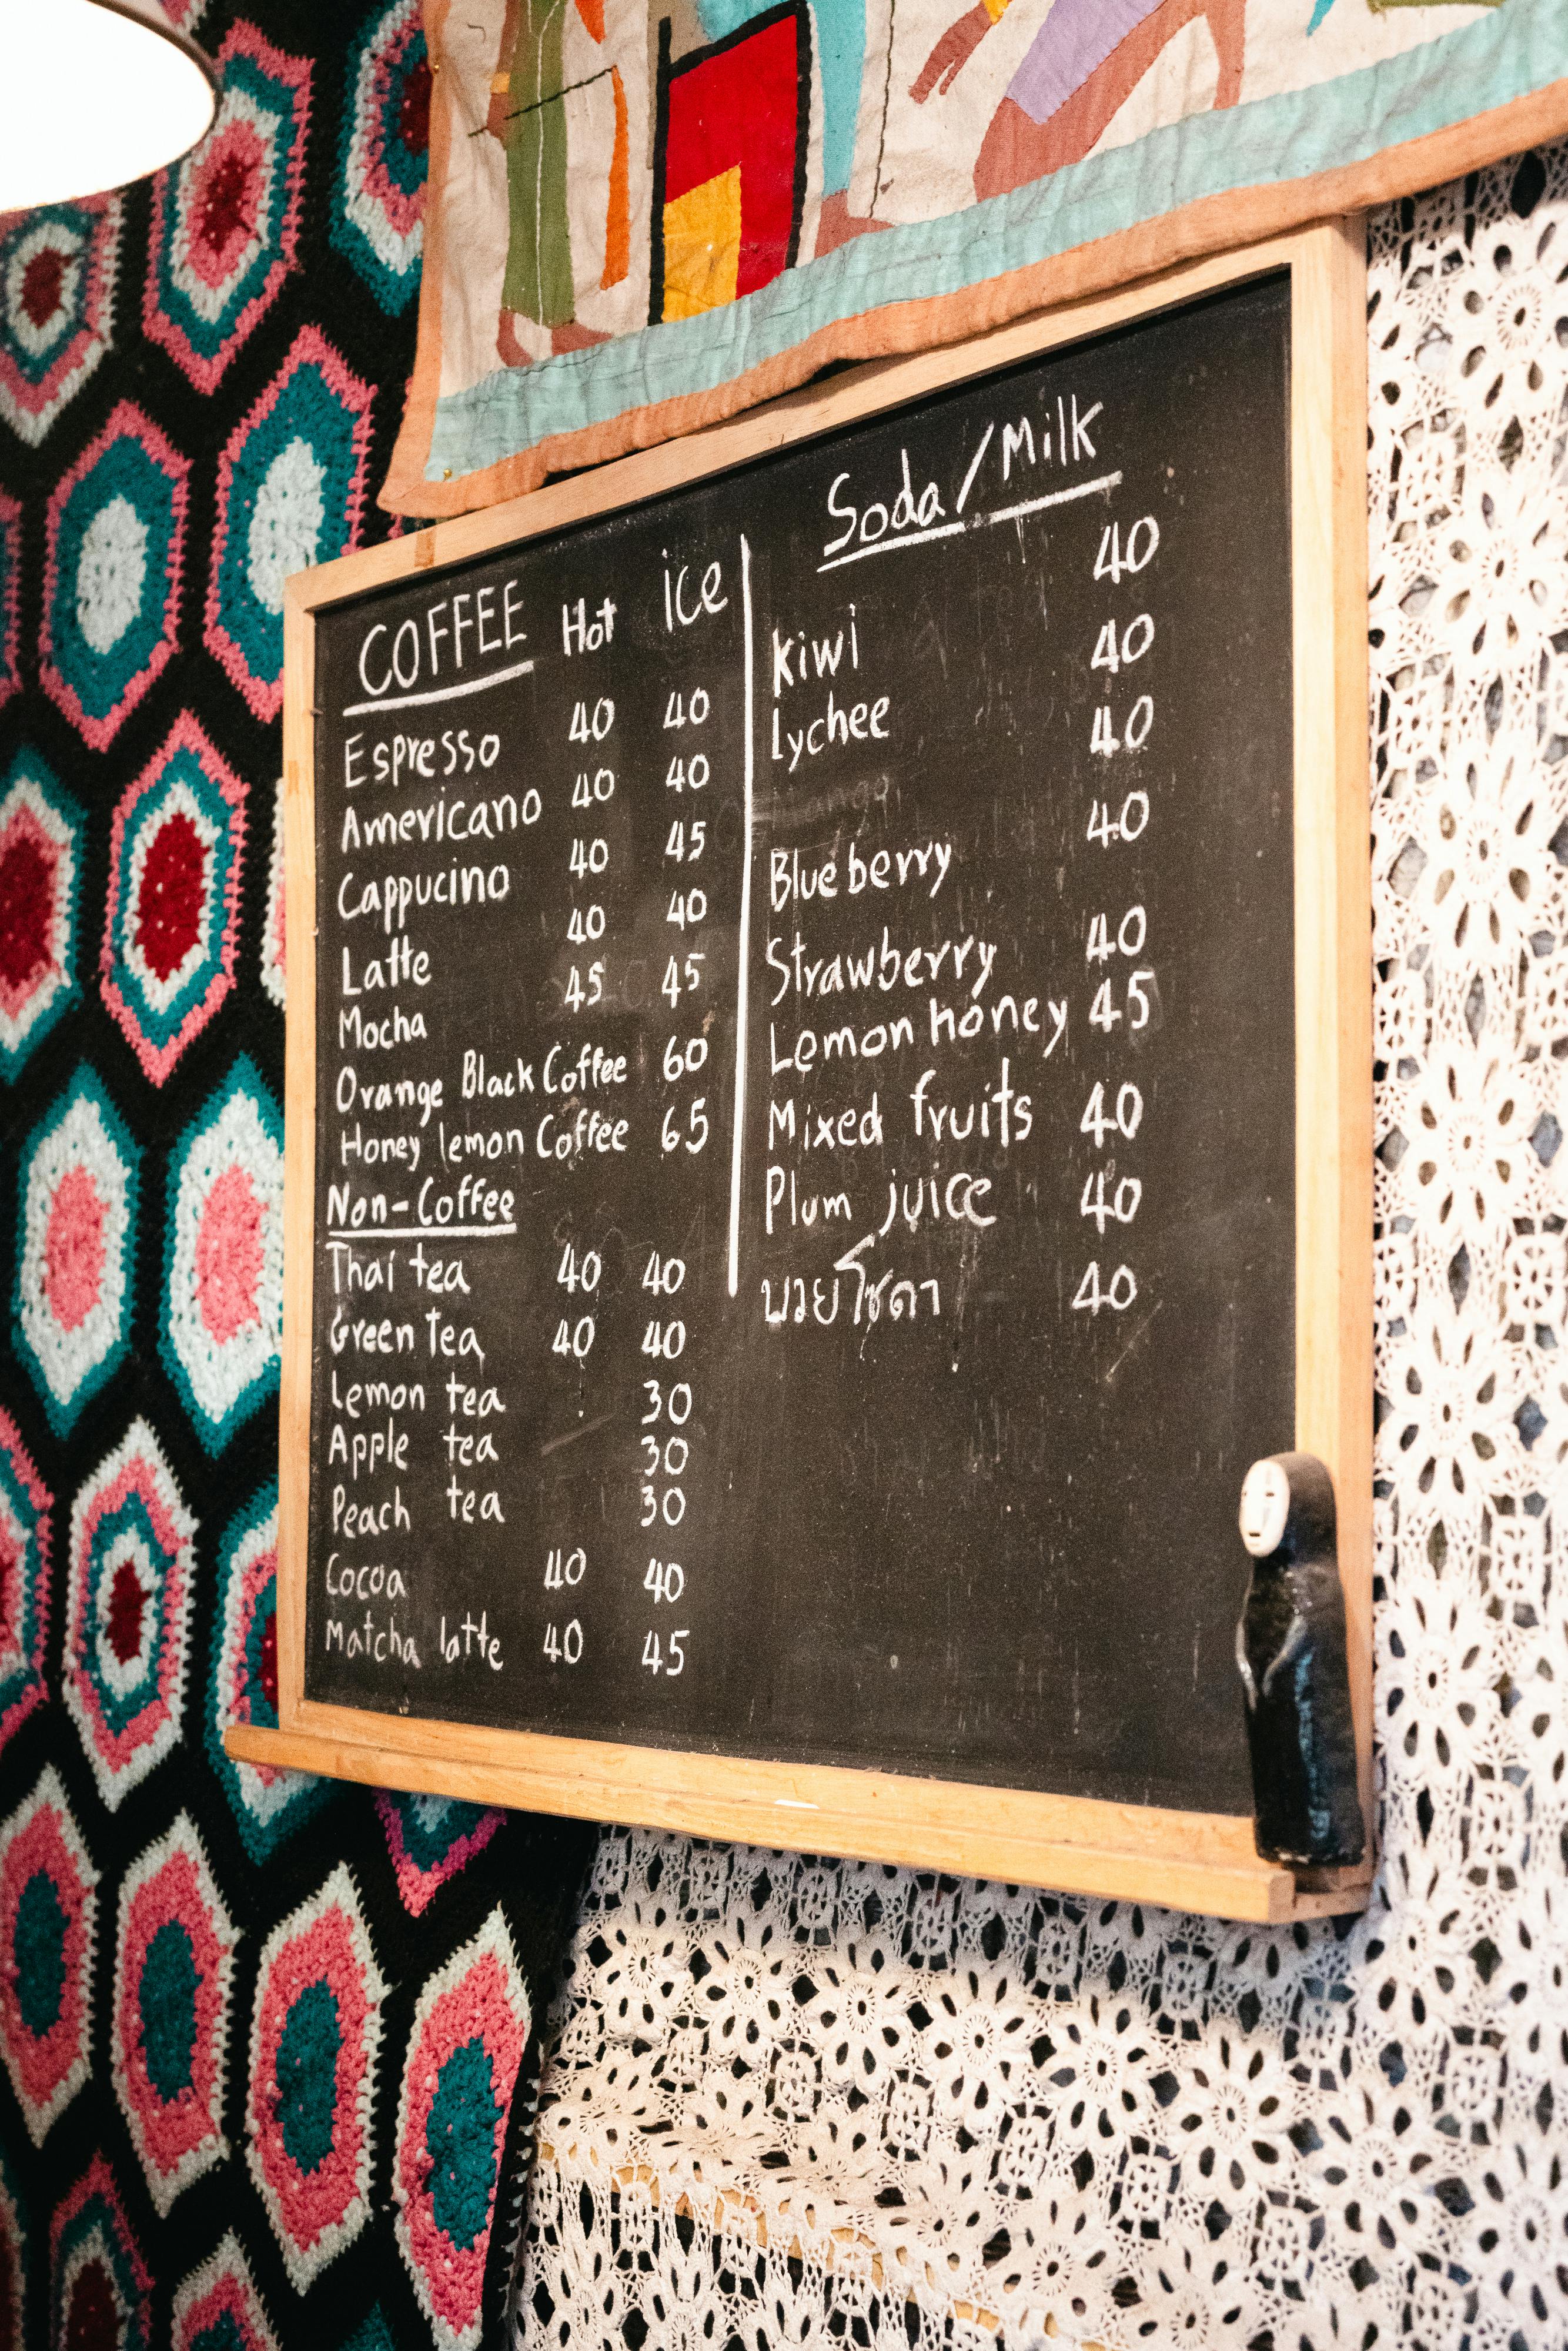 COFFEE Hot ice
Espresso 40 40
Americano 40 40
Cappucino 40 45
Latte 40 40
Mocha 45 45
Orange Black Coffee 60
Honey lemon Coffee 65
Non-Coffee
Thai tea 40 40
Green tea 40 40
Lemon tea 30
Apple tea 30
Peach tea 30
Cocoa 40 40
Matcha latte 40 45
Soda/Milk
Kiwi 40
Lychee 40
40
Blueberry 40
Strawberry 40
Lemon honey 45
Mixed fruits 40
Plum juice 40
บวยโซดา 40